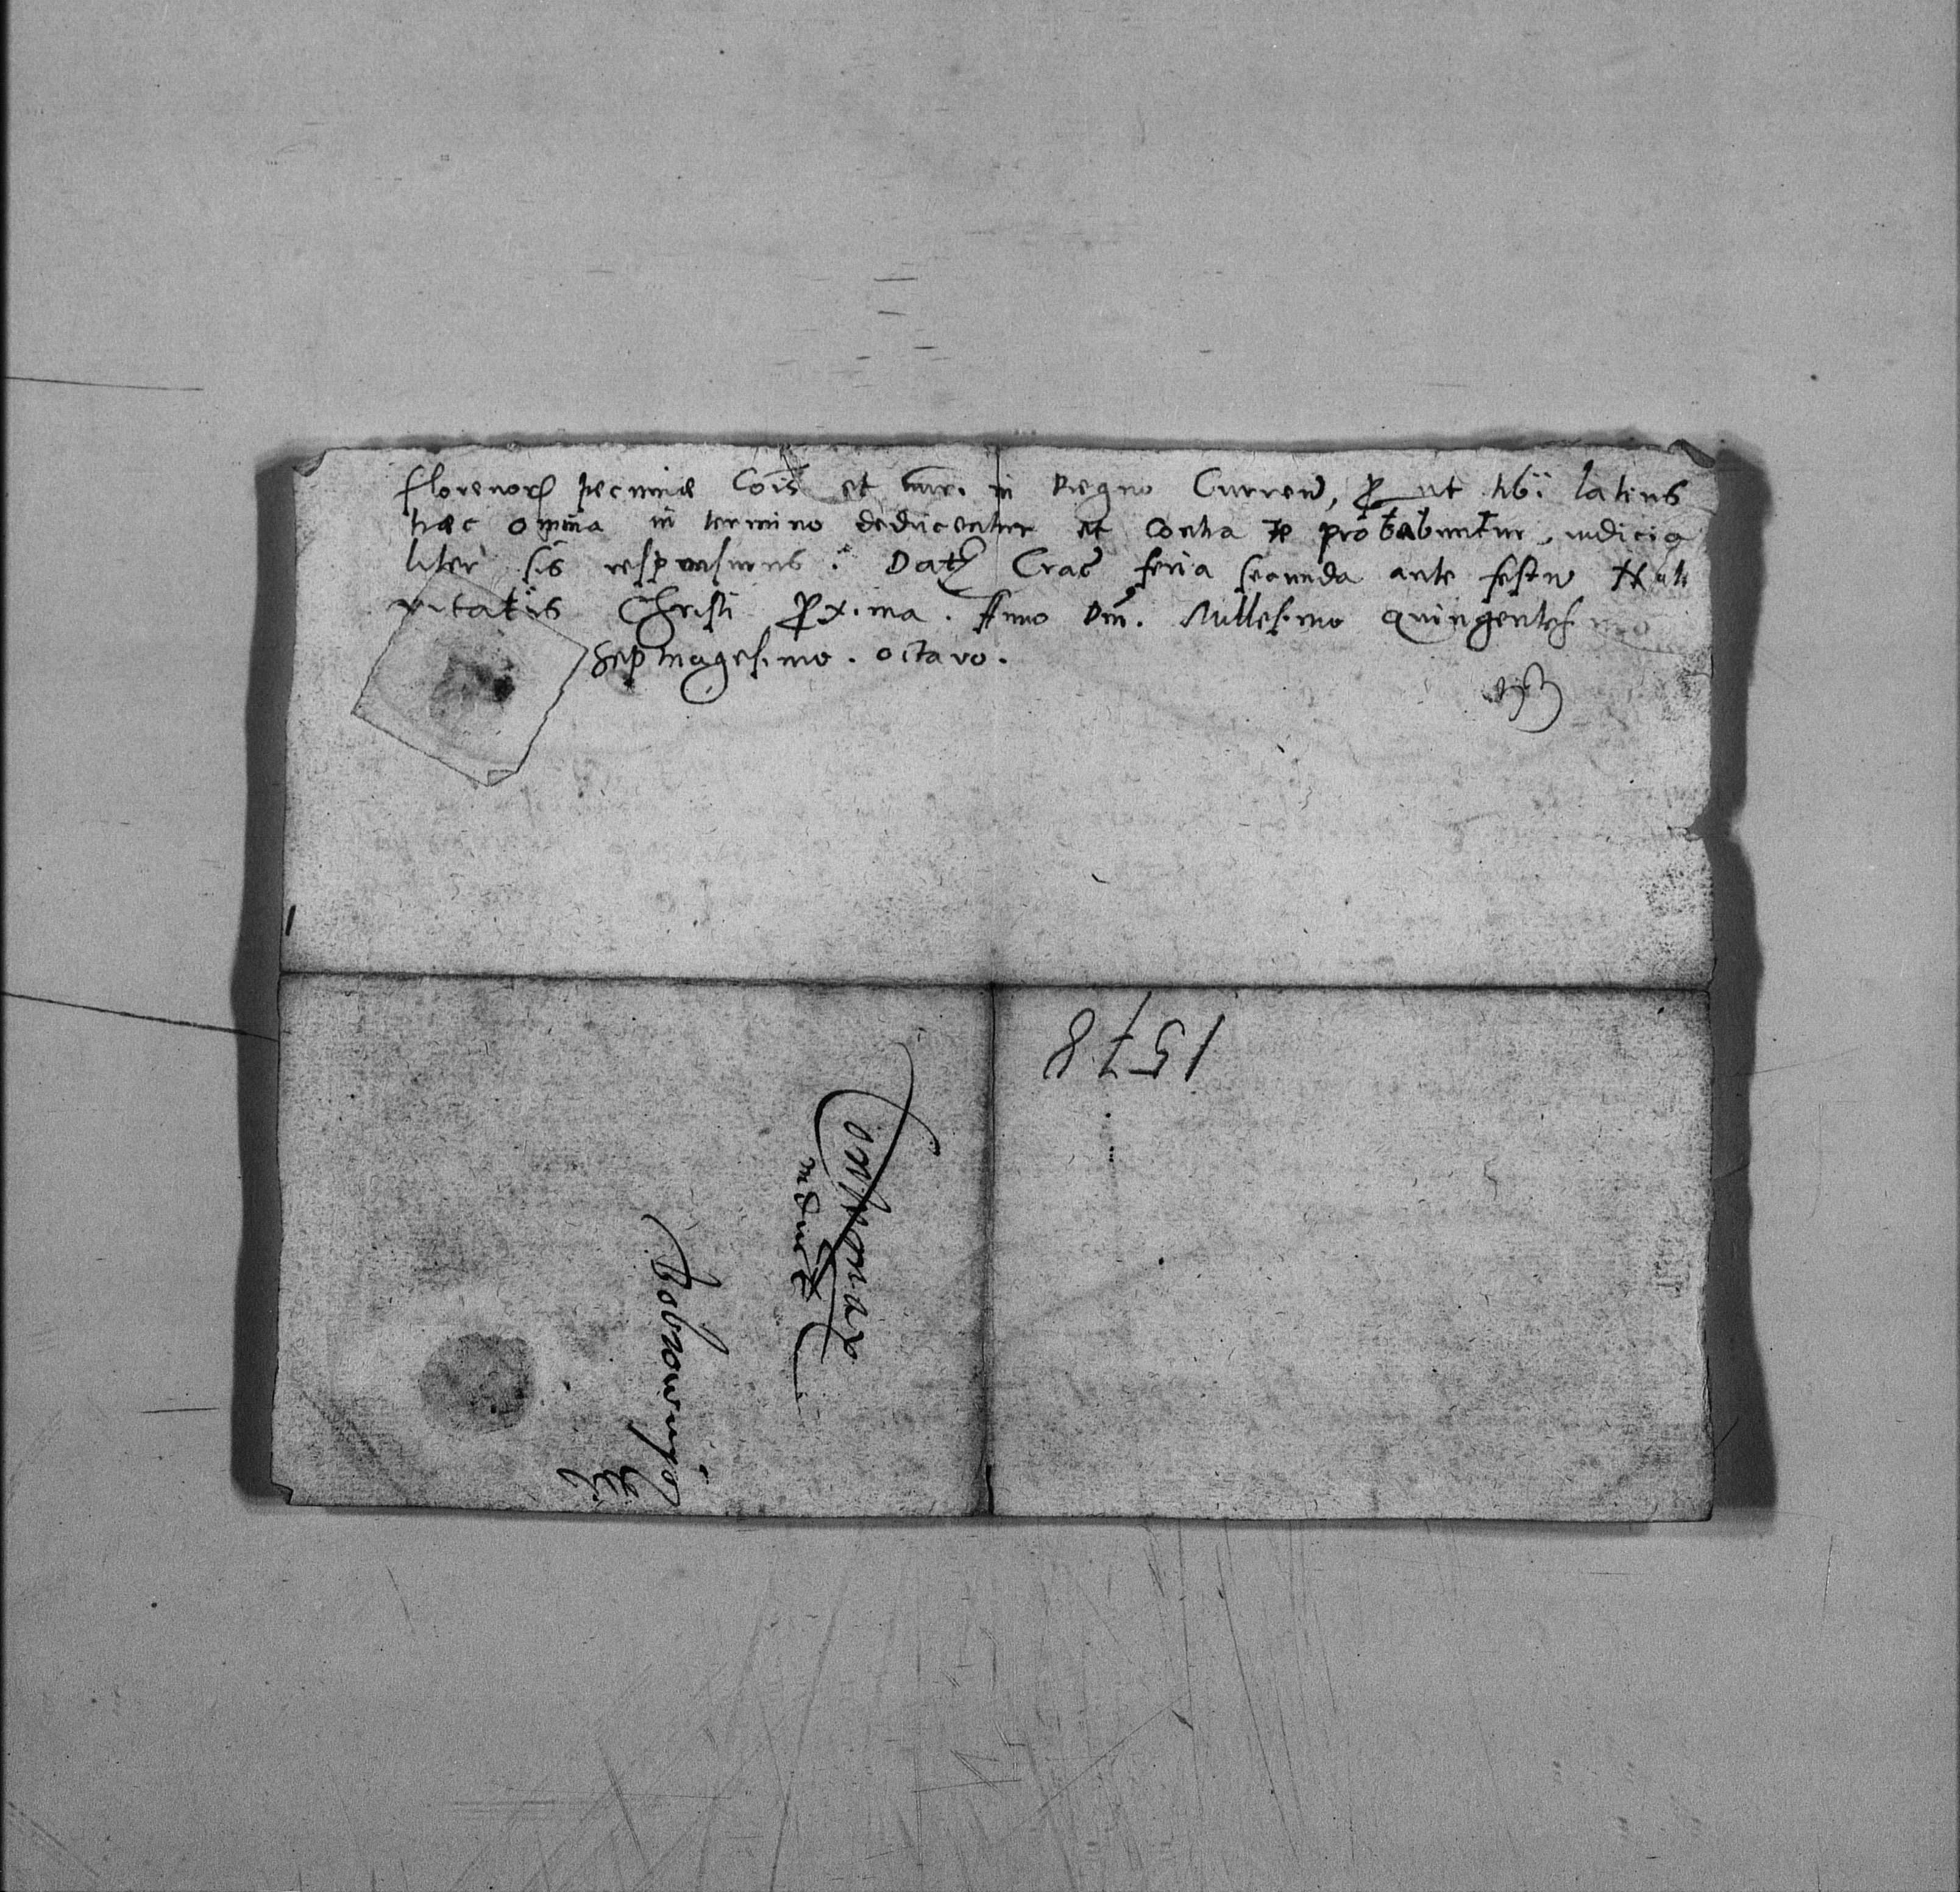 florenoru pecuniæ Cōis et nūr. in Regno Curren, p ut tibi latius
hæc omnia in termino deducentur et contra te probabuntur, iudicia
liter sis responsurus. Dat Crac feria secunda ante festu Nati
vitatis Christi pxima. Anno Dni. Millesimo quingentesimo
Septuagesimo. octavo.
1578